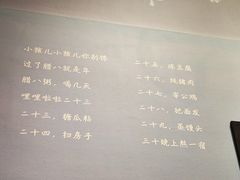 小孩儿小孩儿你别馋
过了腊八就是年
腊八粥，喝几天
哩哩啦啦二十三
二十三，糖瓜粘
二十四，扫房子
二十五，炼豆腐
二十六，炖猪肉
二十七，宰公鸡
二十八，把面发
二十九，蒸馒头
三十晚上熬一宿